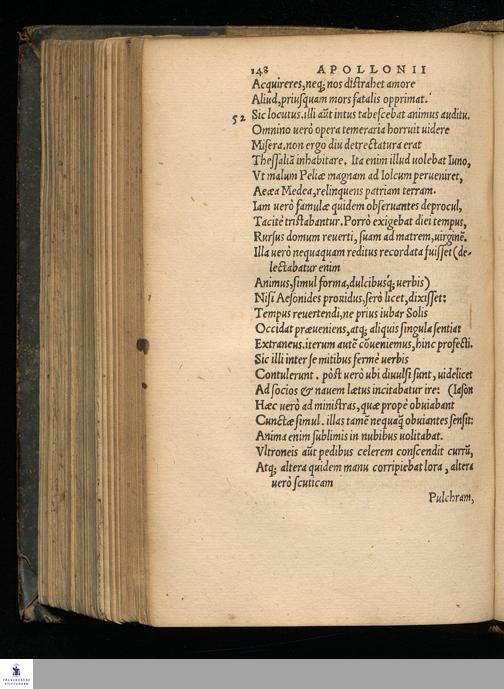 148 APOLLONII
Acquireres, neq; nos distrahet amore
Aliud, priusquam mors fatalis opprimat.
52 Sic locutus. illi aūt intus tabescebat animus auditu.
Omnino uerò opera temeraria horruit uidere
Misera. non ergo diu detrectatura erat
Thessaliā inhabitare. Ita enim illud uolebat Iuno,
Vt malum Peliæ magnam ad Iolcum perueniret,
Aeæa Medea, relinquens patriam terram.
Iam uerò famulæ quidem obseruantes deprocul,
Tacitè tristabantur. Porrò exigebat diei tempus,
Rursus domum reuerti, suam ad matrem, uirginē.
Illa uerò nequaquam reditus recordata fuisset (de-
lectabatur enim
Animus, simul forma, dulcibusq́; uerbis)
Nisi Aesonides prouidus, serò licet, dixisset:
Tempus reuertendi, ne prius iubar Solis
Occidat præueniens, atq; aliquis singula sentiat
Extraneus. iterum autē cōueniemus, hinc profecti.
Sic illi inter se mitibus fermè uerbis
Contulerunt. pòst uerò ubi diuulsi sunt, uidelicet
Ad socios & nauem lætus incitabatur ire: (Iason
Hæc uerò ad ministras, quæ propè obuiabant
Cunctæ simul. illas tamē nequaq̄ obuiantes sensit:
Anima enim sublimis in nubibus uolitabat.
Vltroneis aūt pedibus celerem conscendit currū,
Atq; altera quidem manu corripiebat lora, altera
uerò scuticam
Pulchram,
FRANCKESCHE
STIFTUNGEN